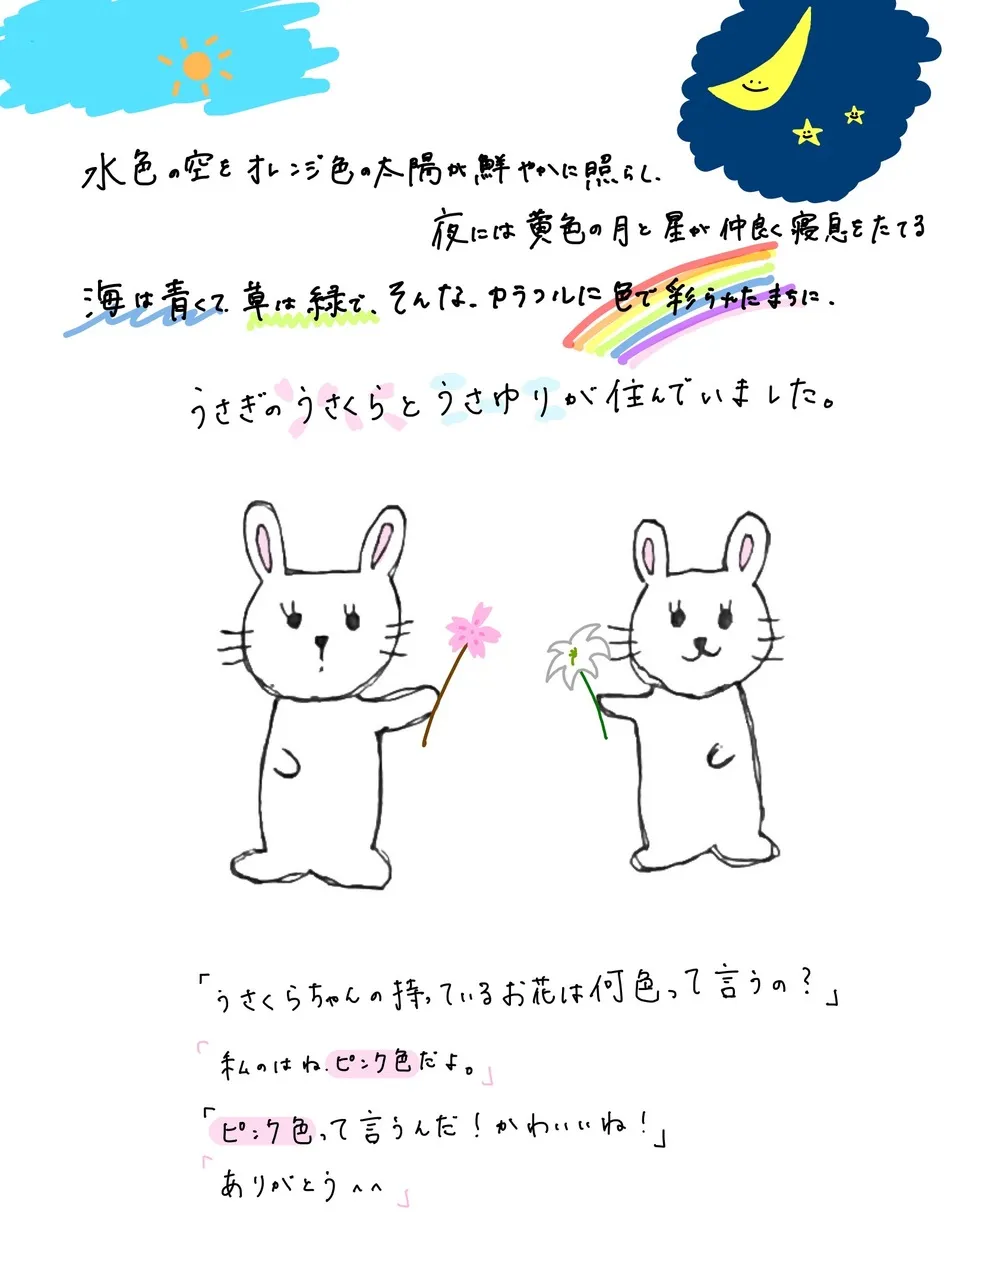 水色の空をオレンジ色の太陽が鮮やかに照らし、
夜には黄色の月と星が仲良く寝息をたてる
海は青くて、草は緑で、そんな、カラフルに色で彩られたまちに、
うさぎのうさくらとうさゆりが住んでいました。
「うさくらちゃんの持っているお花は何色って言うの?」
「私のはね、ピンク色だよ。」
「ピンク色って言うんだ!かわいいね!」
「ありがとう^^」